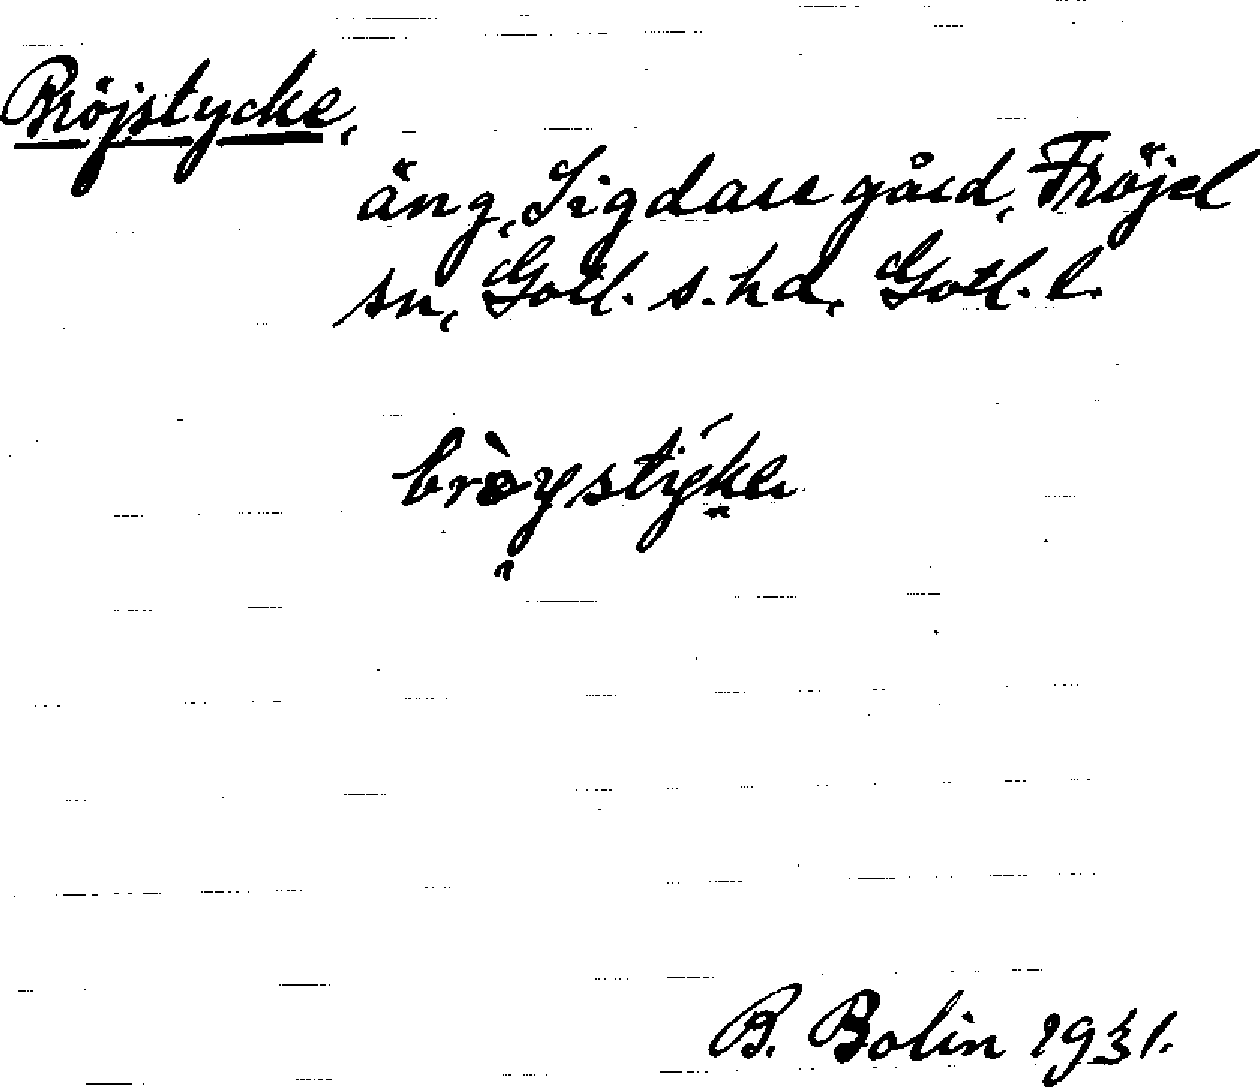 Bröjstycke,
äng, Sigdarve gård, Fröjel
sn, Gotl. s. hd, Gotl. l.
brò̀ystýke
B. Bolin 1931.